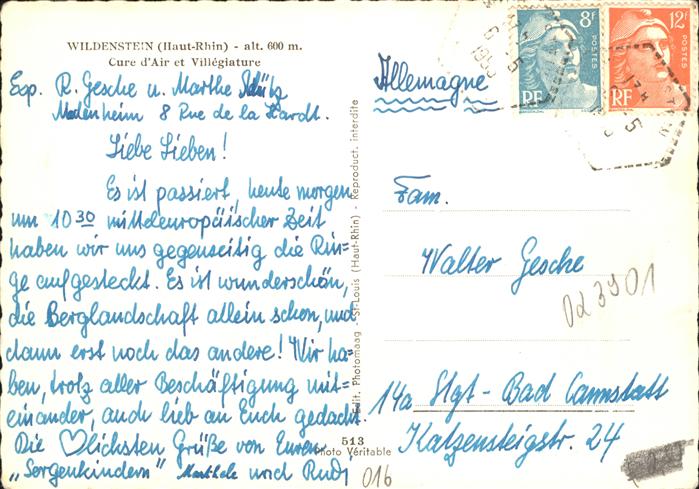 WILDENSTEIN (Haut-Rhin) - alt. 600 m.
Cure d'Air et Villégiature
Exp. R. Gesche u. Marthe
8 Rue de la Hardt.
Liebe Lieben!
Es ist passiert, heute morgen
um 10 30 mitteleuropäischer Zeit
haben wir uns gegenseitig die Rin-
ge aufgesteckt. Es ist wunderschön,
die Berglandschaft allein schon, und
dann erst noch das andere! Wir ha-
ben, trotz aller Beschäftigung mit-
einander, auch lieb an Euch gedacht.
Die ♡lichsten Grüße von Euren
"Sorgenkindern" Marthele und Rudi
016
513
Photo Véritable
Edit. Photomaag - St-Louis (Haut-Rhin) - Reproduct. interdite
8F
POSTES
RF
12F
POSTES
RF
Allemagne
Fam.
Walter Gesche
023901
14a Stgt - Bad Cannstatt
Katzensteigstr. 24